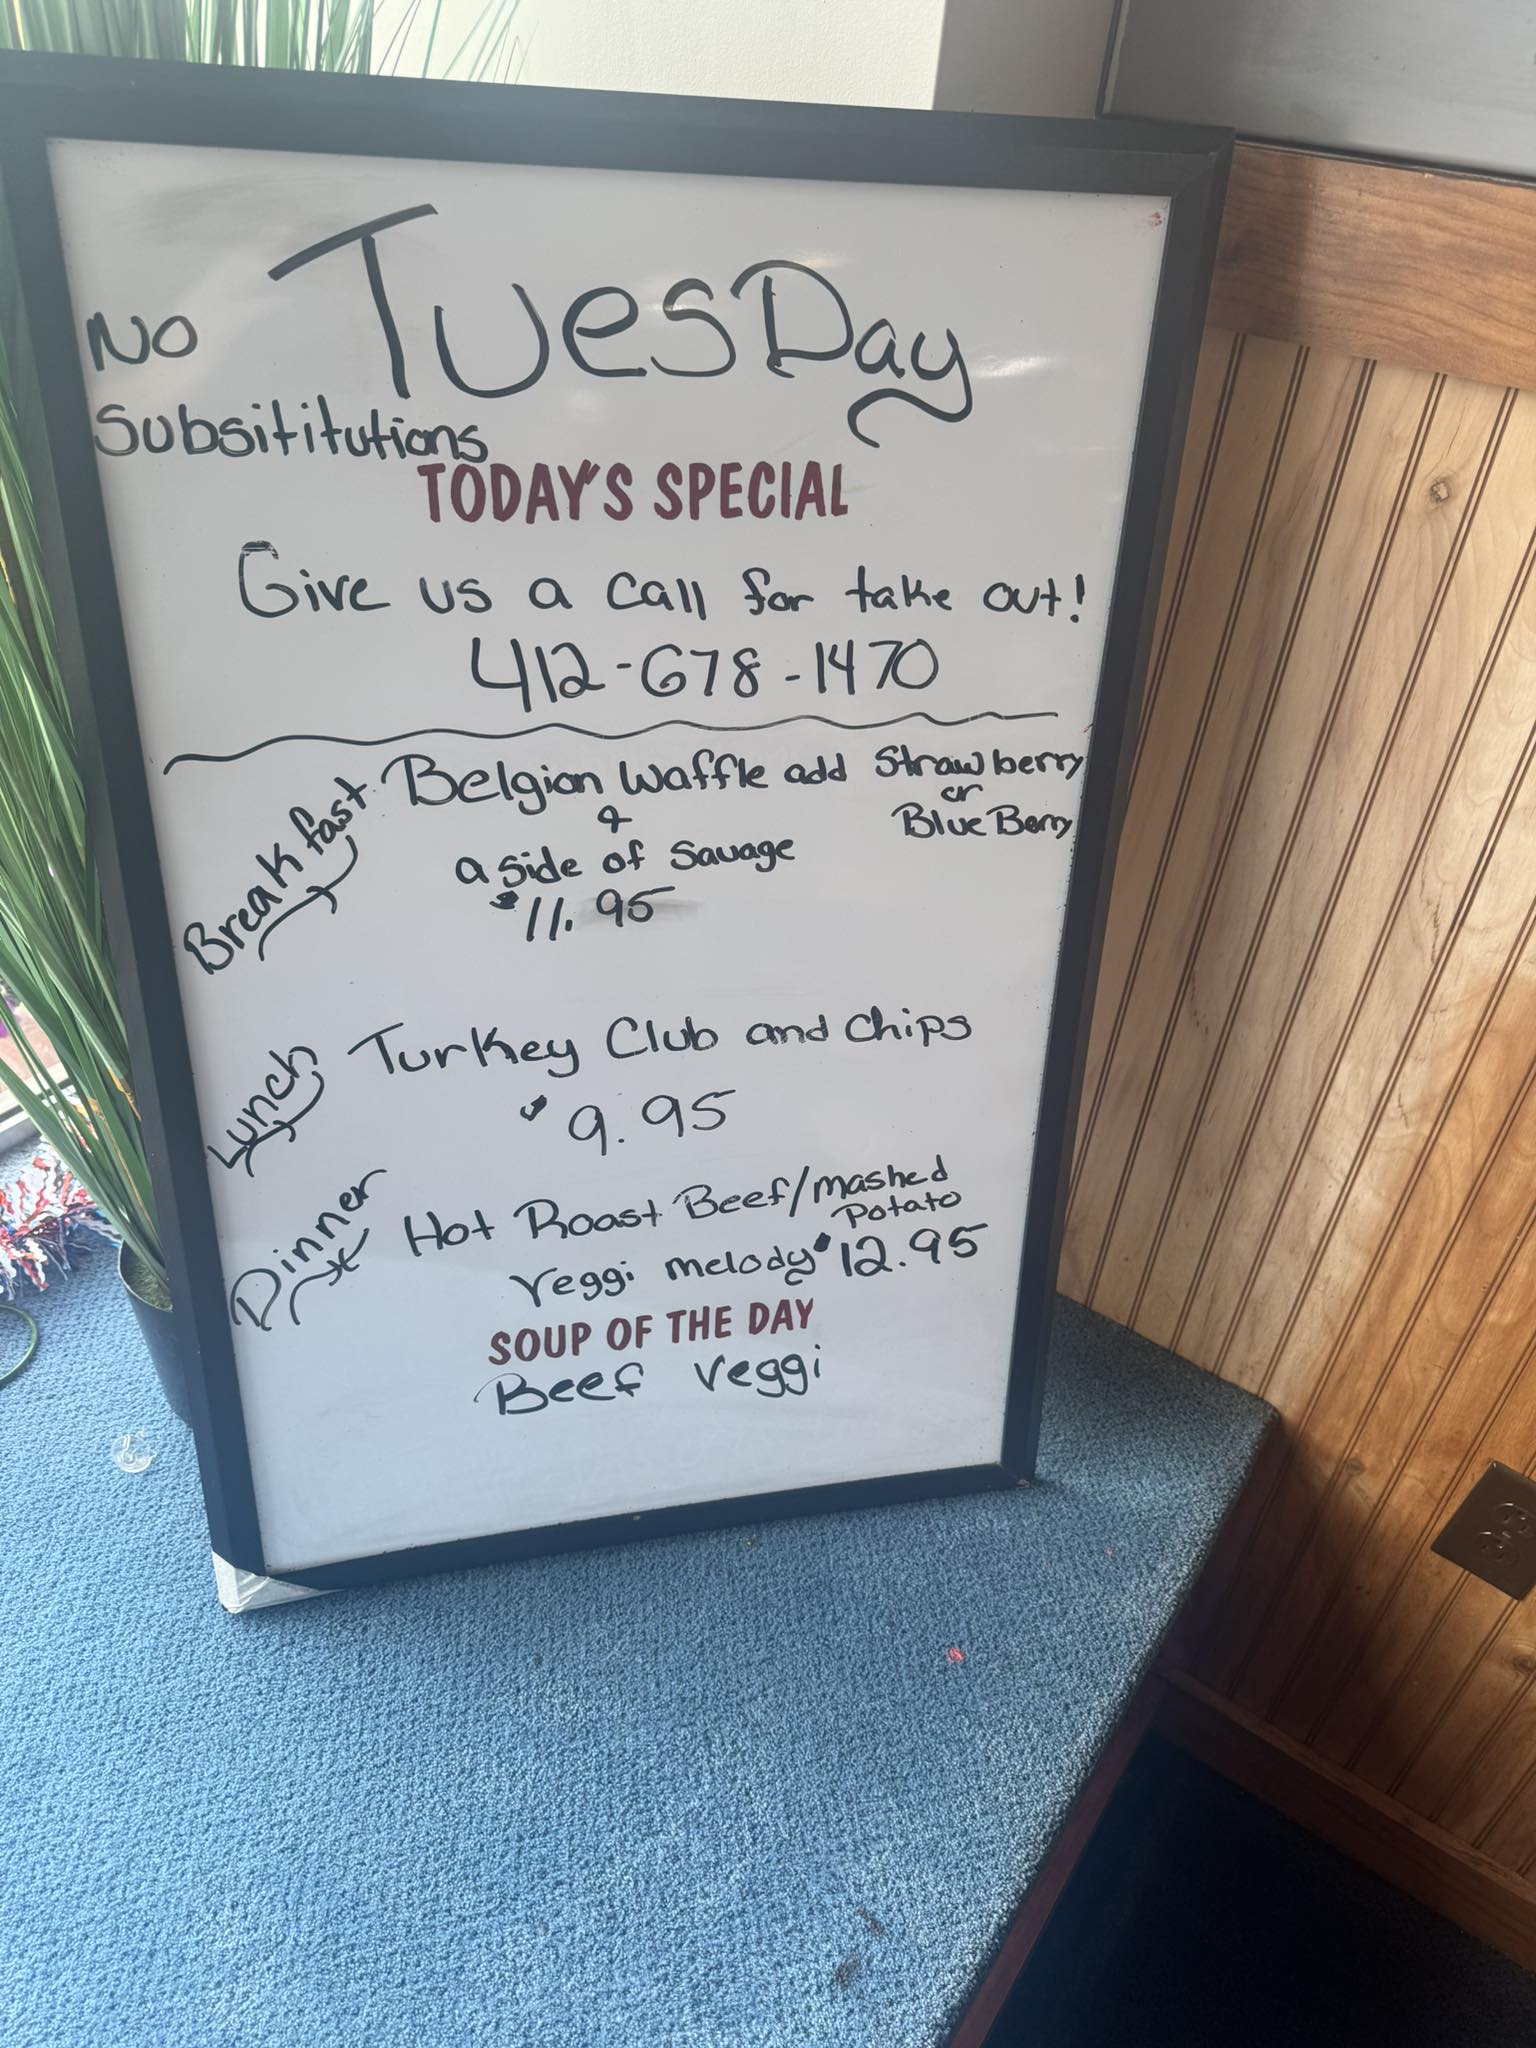 TuesDay
No
Subsititutions
TODAY'S SPECIAL
Give us a call for take out!
412-678-1470
Breakfast
Belgian Waffle add Strawberry
or
Blue Berry
&
a side of Sauage
$11.95
Lunch
Turkey Club and Chips
$9.95
Dinner
Hot Roast Beef/mashed
potato
Veggi melody $12.95
SOUP OF THE DAY
Beef Veggi